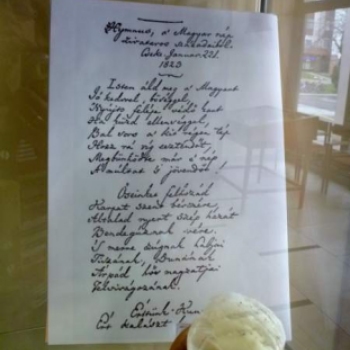 Hymnus, a' Magyar nép
zivataros századaiból.
Cseke Januar. 22d.
1823
Isten áld meg a Magyart
Jó kedvvel, bőséggel,
Nyújts feléje védő kart
Ha küzd ellenséggel;
Bal sors a' kit régen tép
Hozz rá víg esztendőt,
Megbűnhődte már e' nép
A' multat 's jövendőt!
Őseinket felhozád
Kárpát szent bérczére,
Általad nyert szép hazát
Bendegúznak vére.
'S merre zúgnak habjai
Tiszának, Dunának,
Árpád hős magzatjai
Felvirágozának.
Értünk Kun
Ért kalászt